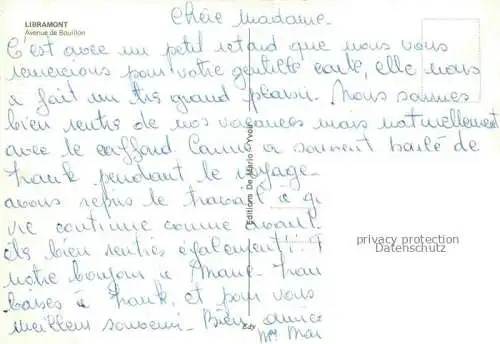 LIBRAMONT
Avenue de Bouillon
Chère madame.
C'est avec un petit retard que nous vous
remercions pour votre gentille carte, elle nous
a fait un très grand plaisir. Nous sommes
bien rentrés de nos vacances mais naturellement
avec le caffard. a souvent parlé de
Frank pendant le voyage.
avons repris le travail
vie continue comme avant.
bien rentrés également
notre bonjour à
baises à Frank, et pour vous
meilleur souvenir. Bien
Editions De Mario
privacy protection
Datenschutz